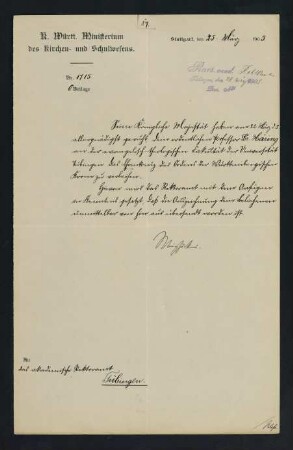 K. Württ. Ministerium
des Kirchen- und Schulwesens.
Stuttgart, den 25. März 1903
Nr. 1715
Seine Königliche Majestät haben am
allergnädigst geruht, dem ordentlichen Professor Dr. Haering
an der evangelisch-theologischen Fakultät der Universität
Tübingen das Ehrenkreuz des Ordens der Württembergischen
Krone zu verleihen.
Hievon wird das Rektoramt mit dem Anfügen
in Kenntnis gesetzt, daß die Auszeichnung dem Beliehenen
unmittelbar von hier aus übersandt worden ist.
Weizsäcker
An
das akademische Rektoramt
Tübingen.